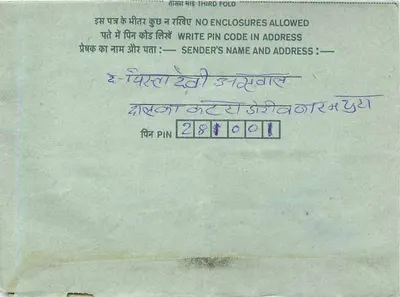 तीसरा मोड़ THIRD FOLD
इस पत्र के भीतर कुछ न रखिए NO ENCLOSURES ALLOWED
पते में पिन कोड लिखें WRITE PIN CODE IN ADDRESS
प्रेषक का नाम और पता :— SENDER'S NAME AND ADDRESS :—
देवी
कटरा
पिन PIN 281001